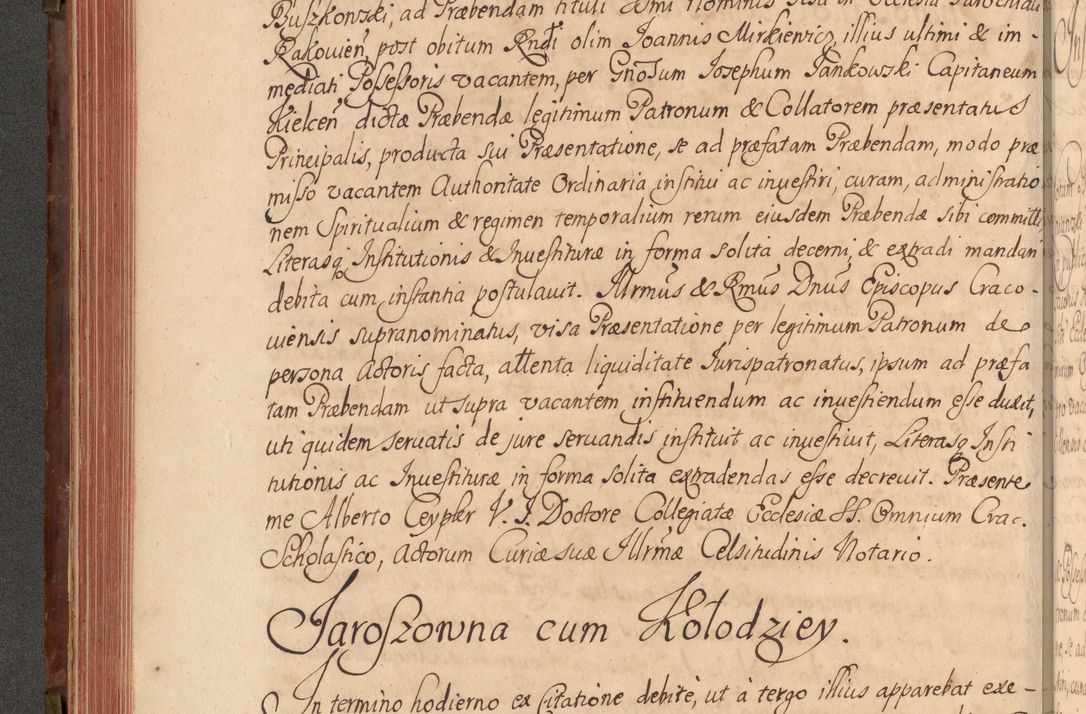 Buszkowski, ad Præbendam tituli SSmi Nominis Jesu in Ecclesia Parochiali
Rakovien, post obitum Rndi olim Joannis Mirkiewicz, illius ultimi & im-
mediati Possessoris vacantem, per Gnosum Josephum Jankowski Capitaneum
Kielcen dictæ Præbendæ legitimum Patronum & Collatorem præsentatus
Principalis, producta sui Præsentatione, se ad præfatam Præbendam, modo præ
misso vacantem Authoritate Ordinaria institui ac investiri, curam, administratio
nem Spiritualium & regimen temporalium rerum eiusdem Præbendæ sibi committi,
Literasq Institutionis & Investituræ in forma solita decerni, & extradi mandari
debita cum instantia postulavit. Illrmus & Rmus Dnus Episcopus Craco-
viensis supranominatus, visa Præsentatione per legitimum Patronum de
persona Actoris facta, attenta liquiditate Jurispatronatus, ipsum ad præfa
tam Præbendam ut supra vacantem instituendum ac investiendum esse duxit,
uti quidem servatis de jure servandis instituit ac investivit, Literasq Insti
tutionis ac Investituræ in forma solita extradendas esse decrevit. Præsente
me Alberto Ceypler V. J. Doctore Collegiatæ Ecclesiæ SS. Omnium Crac.
Scholastico, Actorum Curiæ suæ Illrmæ Celsitudinis Notario.
Jaroszowna cum Kołodziey.
In termino hodierno ex Citatione debite, ut à tergo illius apparebat exe-